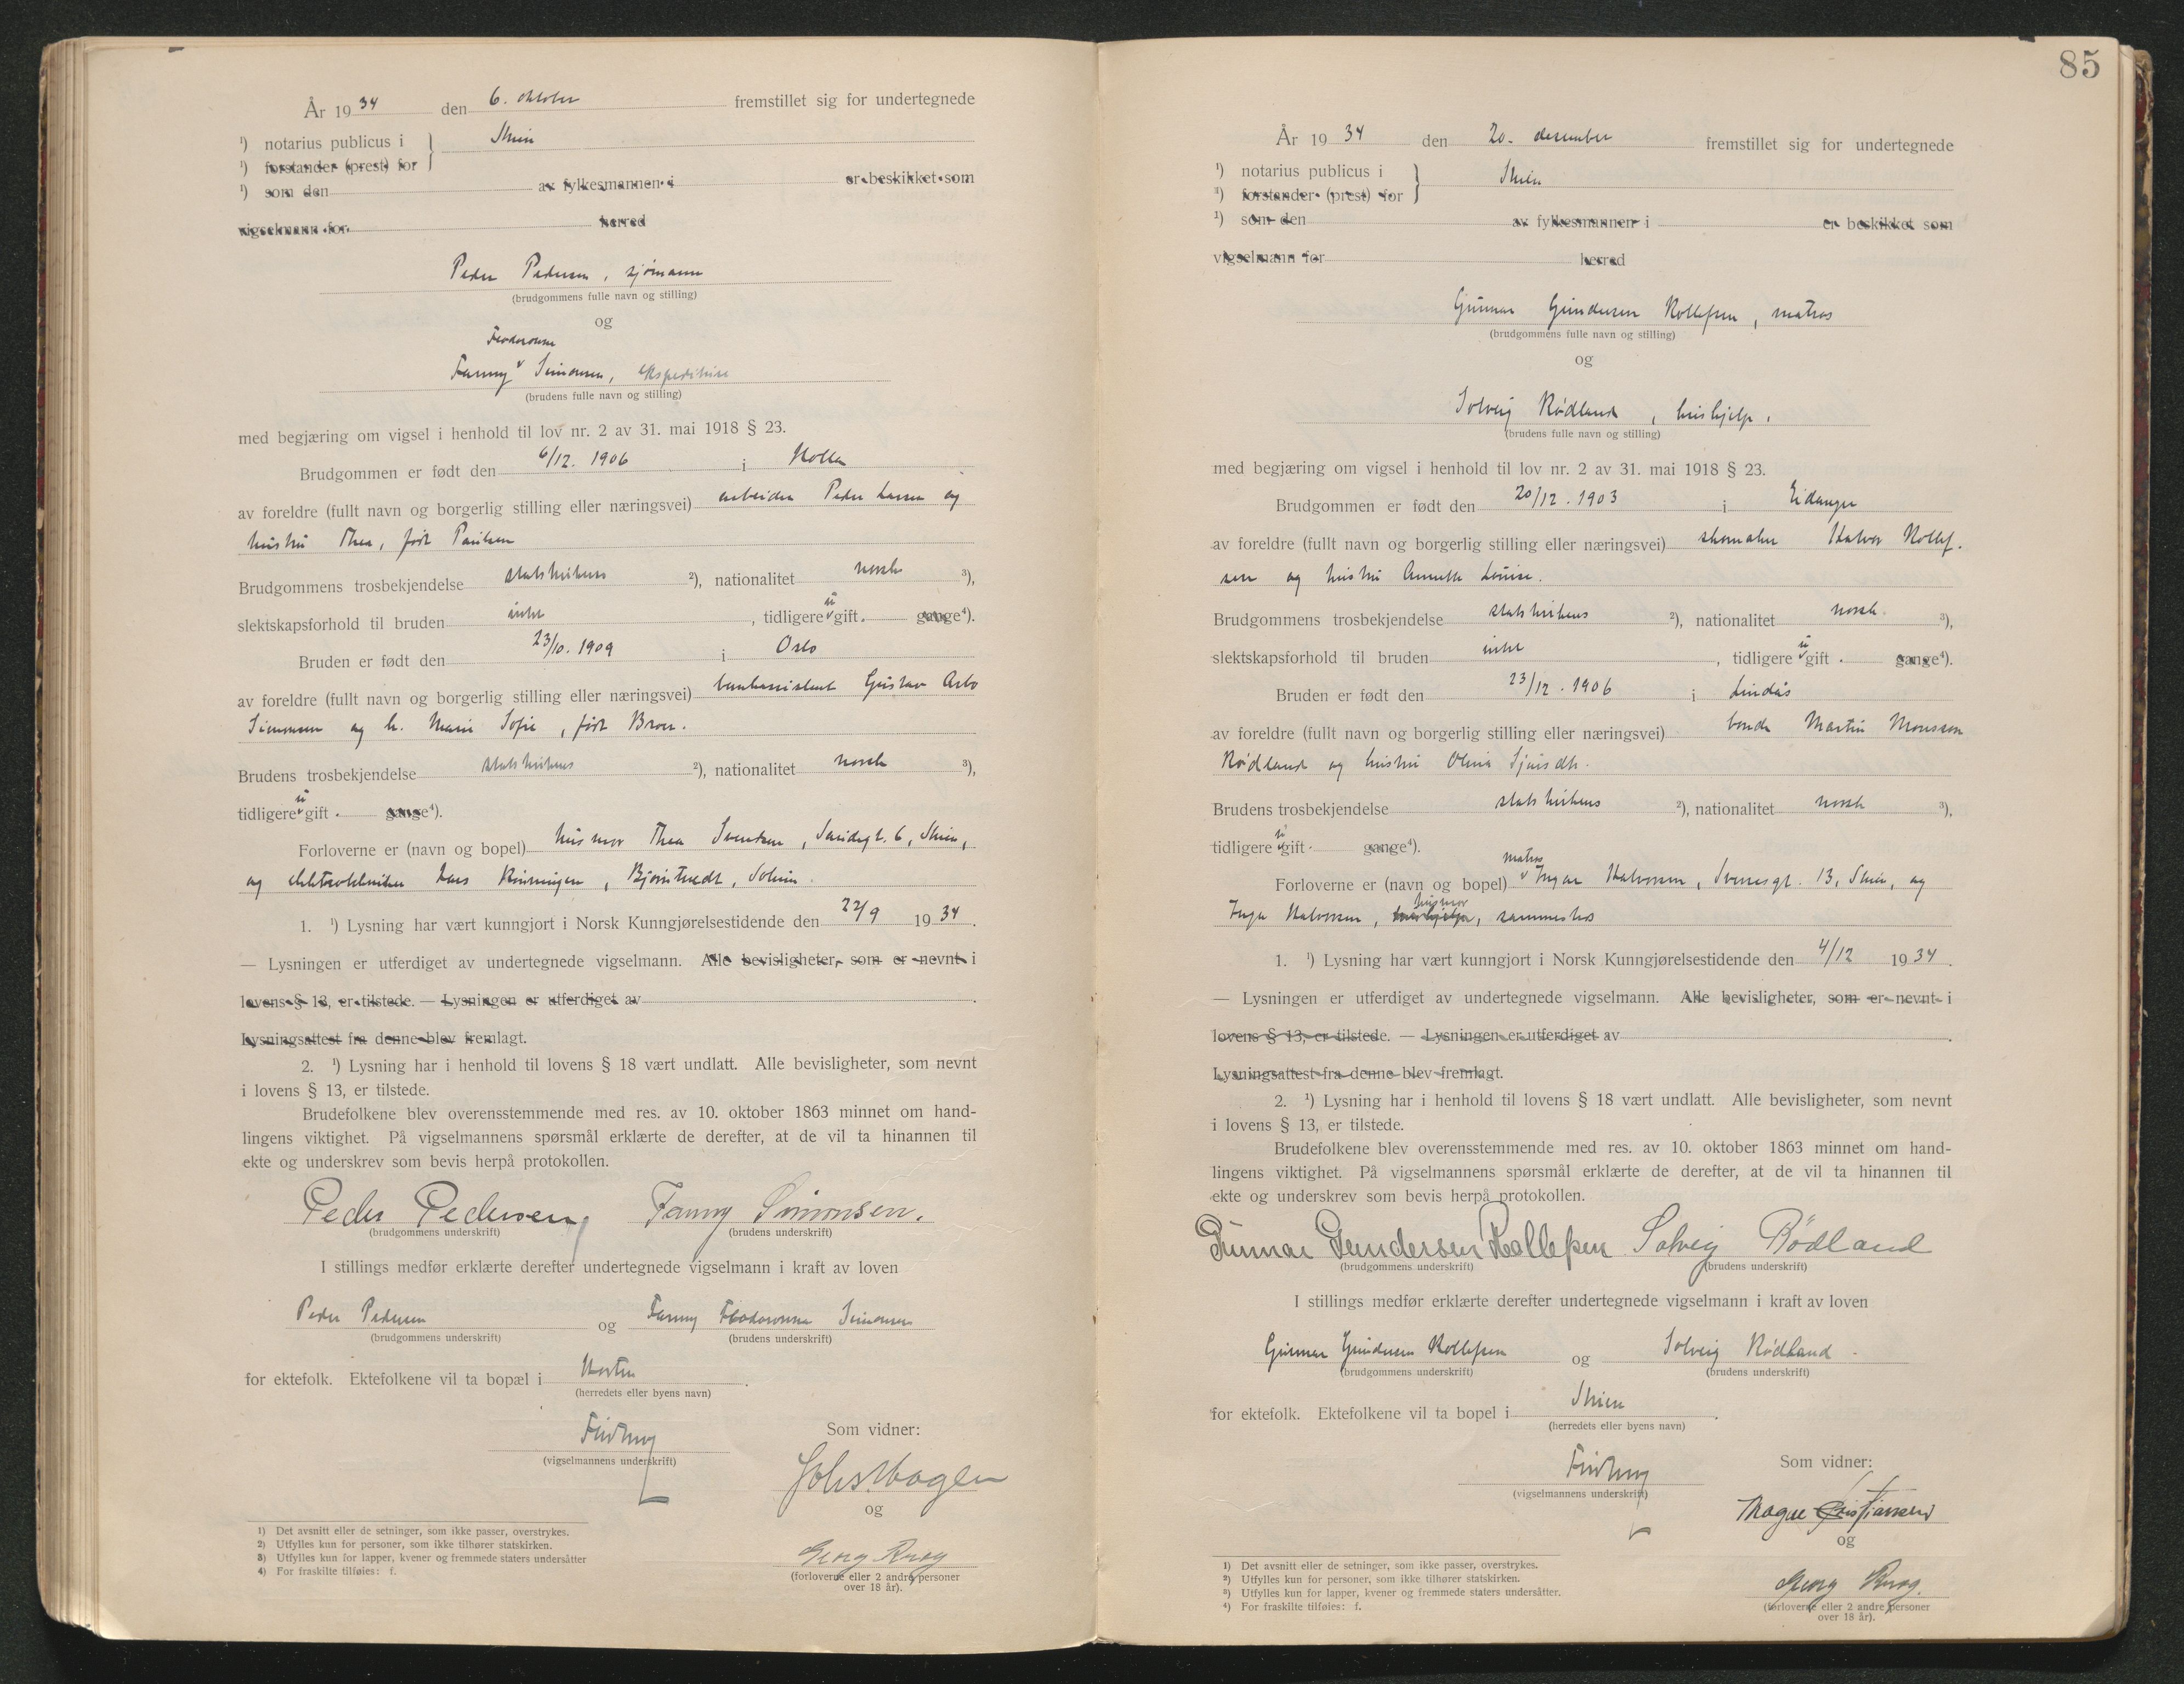 År 19 34 den 6. oktober fremstillet sig for undertegnede
¹) notarius publicus i } Skien
¹) forstander (prest) for
¹) som den av fylkesmannen i er beskikket som
vigselmann for herred
Peder Pedersen, sjømann
(brudgommens fulle navn og stilling)
og
Feodorowna
Fanny v Simonsen, ekspeditrise
(brudens fulle navn og stilling)
med begjæring om vigsel i henhold til lov nr. 2 av 31. mai 1918 § 23.
Brudgommen er født den 6/12. 1906 i Holla
av foreldre (fullt navn og borgerlig stilling eller næringsvei) arbeider Peder Larsen og
hustru Thea, født Paulsen
Brudgommens trosbekjendelse statskirkens ²), nationalitet norsk ³),
slektskapsforhold til bruden intet, tidligere u gift. gange⁴).
Bruden er født den 23/10. 1909 i Oslo
av foreldre (fullt navn og borgerlig stilling eller næringsvei) bankassistent Gustav Arbo
Simonsen og h. Marie Sofie, født Bror.
Brudens trosbekjendelse statskirkens ²), nationalitet norsk ³),
tidligere u gift. gange⁴).
Forloverne er (navn og bopel) husmor Thea Svendsen, 6, Skien,
og elektrotekniker Lars, Solum.
1. ¹) Lysning har vært kunngjort i Norsk Kunngjørelsestidende den 22/9 19 34.
— Lysningen er utferdiget av undertegnede vigselmann. Alle bevisligheter, som er nevnt i
lovens § 13, er tilstede. — Lysningen er utferdiget av .
Lysningsattest fra denne blev fremlagt.
2. ¹) Lysning har i henhold til lovens § 18 vært undlatt. Alle bevisligheter, som nevnt
i lovens § 13, er tilstede.
Brudefolkene blev overensstemmende med res. av 10. oktober 1863 minnet om hand-
lingens viktighet. På vigselmannens spørsmål erklærte de derefter, at de vil ta hinannen til
ekte og underskrev som bevis herpå protokollen.
Peder Pedersen Fanny Simonsen.
(brudgommens underskrift) (brudens underskrift)
I stillings medfør erklærte derefter undertegnede vigselmann i kraft av loven
Peder Pedersen og Fanny Feodorowna Simonsen
(brudgommens underskrift) (brudens underskrift)
for ektefolk. Ektefolkene vil ta bopæl i Horten.
(herredets eller byens navn)
(vigselmannens underskrift)
Som vidner:
og
Georg Krog
(forloverne eller 2 andre personer
over 18 år).
1) Det avsnitt eller de setninger, som ikke passer, overstrykes.
2) Utfylles kun for personer, som ikke tilhører statskirken.
3) Utfylles kun for lapper, kvener og fremmede staters undersåtter
4) For fraskilte tilføies: f.
85
År 19 34 den 20. desember fremstillet sig for undertegnede
¹) notarius publicus i } Skien
³) forstander (prest) for
¹) som den av fylkesmannen i er beskikket som
vigselmann for herred
Gunnar Gundersen Rollefsen, matros
(brudgommens fulle navn og stilling)
og
Solveig Rødland, hushjelp.
(brudens fulle navn og stilling)
med begjæring om vigsel i henhold til lov nr. 2 av 31. mai 1918 § 23.
Brudgommen er født den 20/12. 1903 i Eidanger
av foreldre (fullt navn og borgerlig stilling eller næringsvei) skomaker Halvor Rollef-
sen og hustru Annette Louise.
Brudgommens trosbekjendelse statskirkens ²), nationalitet norsk ³),
slektskapsforhold til bruden intet, tidligere u gift. gange⁴).
Bruden er født den 23/12. 1906 i Lindås
av foreldre (fullt navn og borgerlig stilling eller næringsvei) bonde Martin Monsson
Rødland og hustru Olina Sjursdtr.
Brudens trosbekjendelse statskirkens ²), nationalitet norsk ³),
tidligere u gift. gange⁴).
matros
Forloverne er (navn og bopel) v Ingar Halvorsen, Sverresgt. 13, Skien, og
husmor
Inga Halvorsen, hushjelp, sammesteds
1. ¹) Lysning har vært kunngjort i Norsk Kunngjørelsestidende den 4/12 19 34.
— Lysningen er utferdiget av undertegnede vigselmann. Alle bevisligheter, som er nevnt i
lovens § 13, er tilstede. — Lysningen er utferdiget av .
Lysningsattest fra denne blev fremlagt.
2. ¹) Lysning har i henhold til lovens § 18 vært undlatt. Alle bevisligheter, som nevnt
i lovens § 13, er tilstede.
Brudefolkene blev overensstemmende med res. av 10. oktober 1863 minnet om hand-
lingens viktighet. På vigselmannens spørsmål erklærte de derefter, at de vil ta hinannen til
ekte og underskrev som bevis herpå protokollen.
Gunnar Gundersen Rollefsen Solveig Rödland
(brudgommens underskrift) (brudens underskrift)
I stillings medfør erklærte derefter undertegnede vigselmann i kraft av loven
Gunnar Gundersen Rollefsen og Solveig Rødland
(brudgommens underskrift) (brudens underskrift)
for ektefolk. Ektefolkene vil ta bopel i Skien.
(herredets eller byens navn)
(vigselmannens underskrift)
Som vidner:
Magne Cristiansen
og
Georg Krog.
(forloverne eller 2 andre personer
over 18 år).
1) Det avsnitt eller de setninger, som ikke passer, overstrykes.
²) Utfylles kun for personer, som ikke tilhører statskirken.
³) Utfylles kun for lapper, kvener og fremmede staters undersåtter.
⁴) For fraskilte tilføies: f.